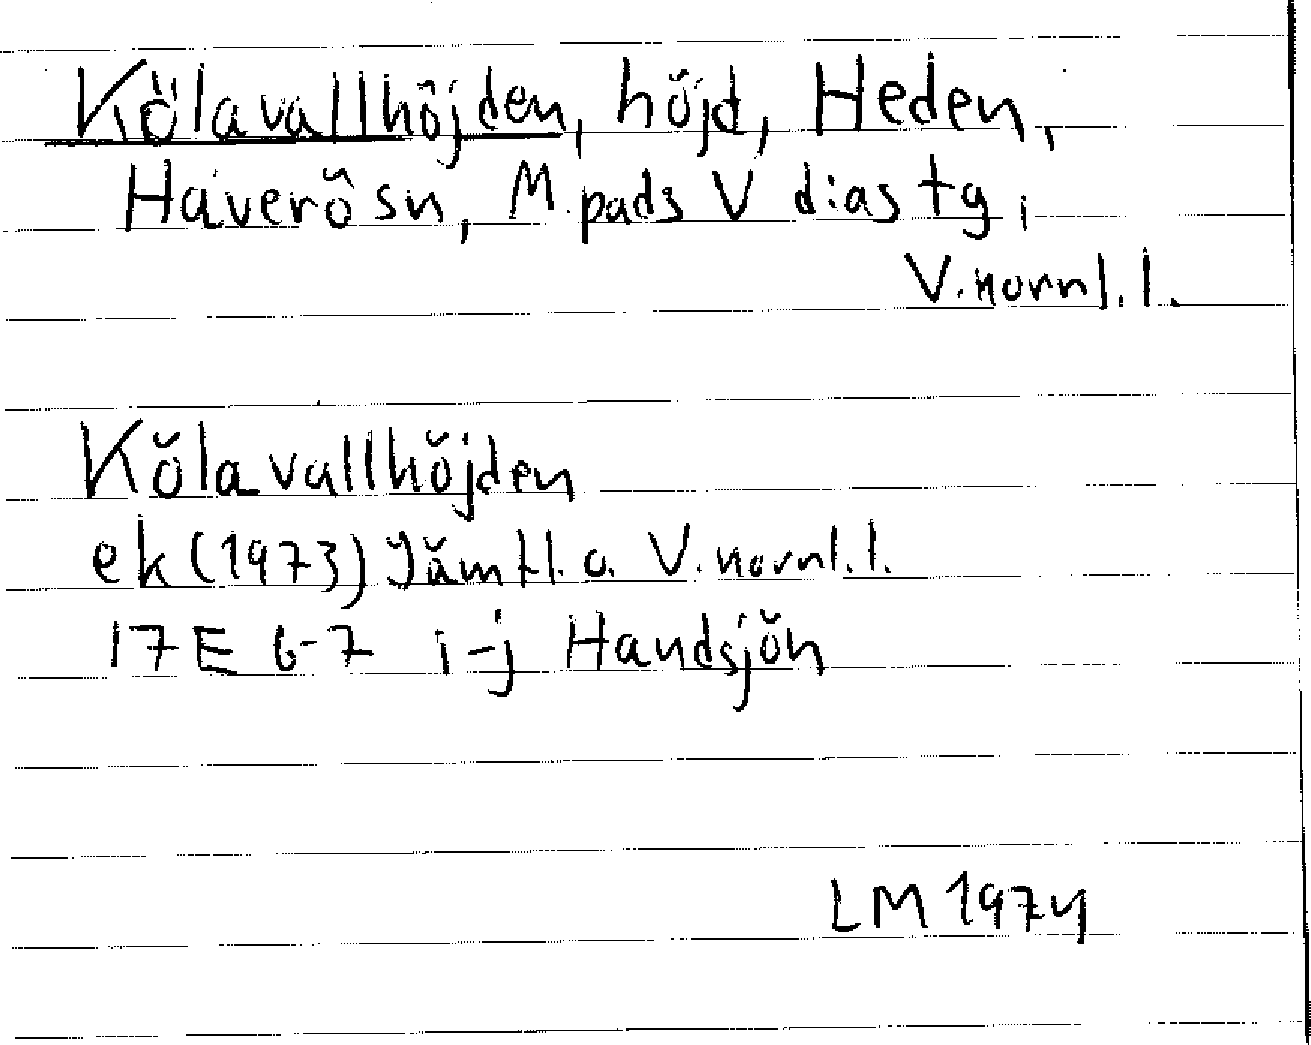 Kölavallhöjden, höjd, Heden,
Haverö sn, M.pads V diastg,
V.norrl.l.
Kölavallhöjden
ek (1973) Jämtl. o. V.norrl.l.
17E 6-7 i-j Handsjön
LM 1974